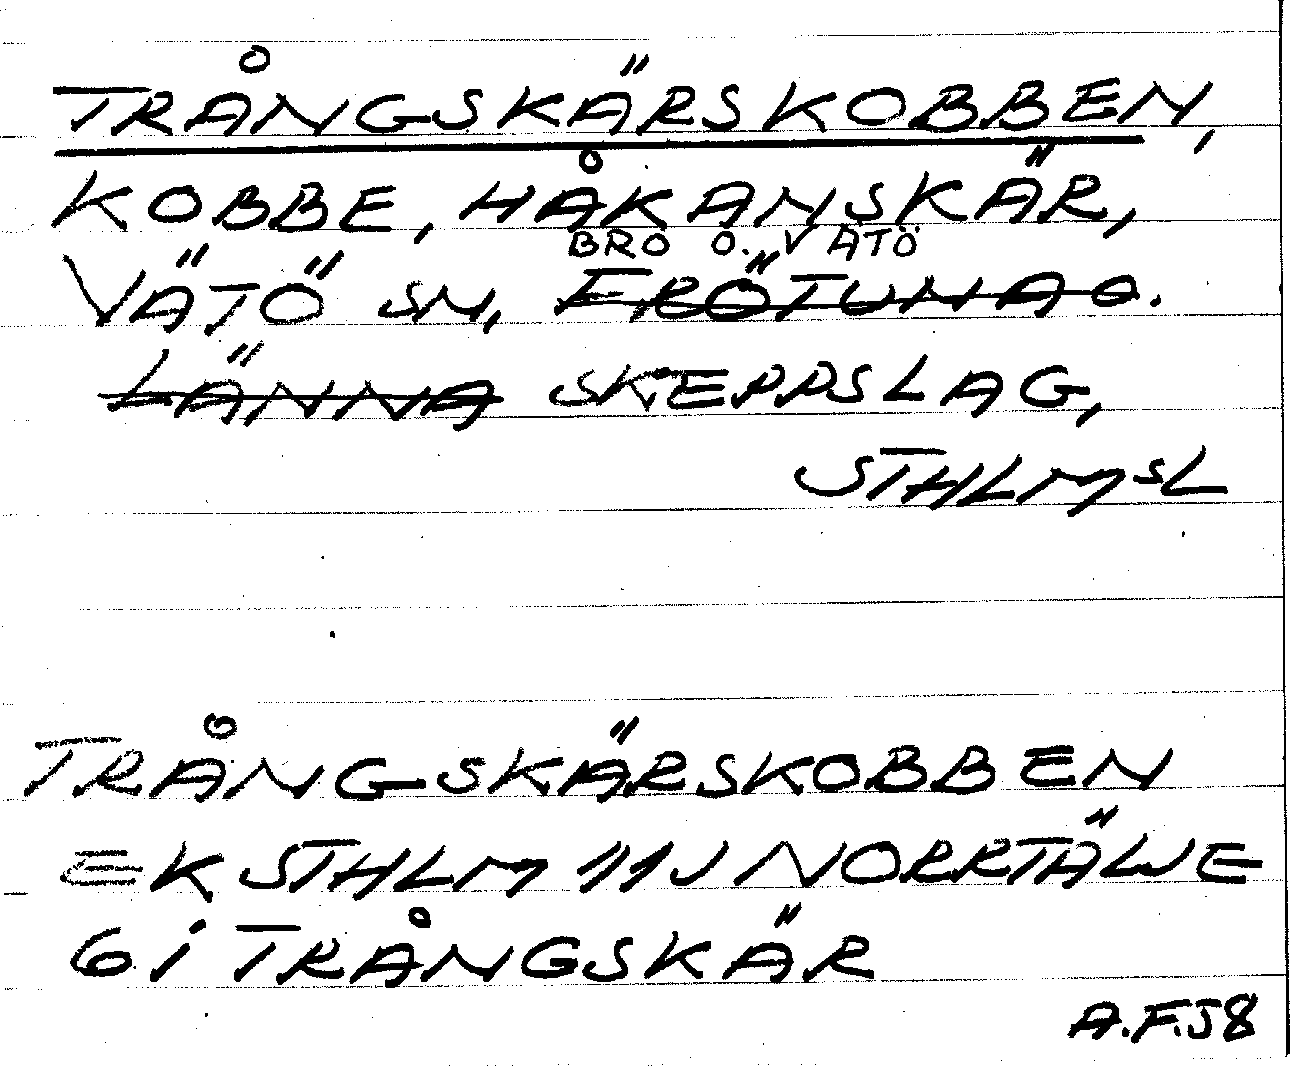 TRÅNGSKÄRSKOBBEN,
KOBBE, HÅKANSKÄR,
BRO O. VÄTÖ
VÄTÖ SN, FRÖTUNA O.
LÄNNA SKEPPSLAG,
STHLMSL
TRÅNGSKÄRSKOBBEN
EK STHLM 111J NORRTÄLJE
GI TRÅNGSKÄR
A.F.58